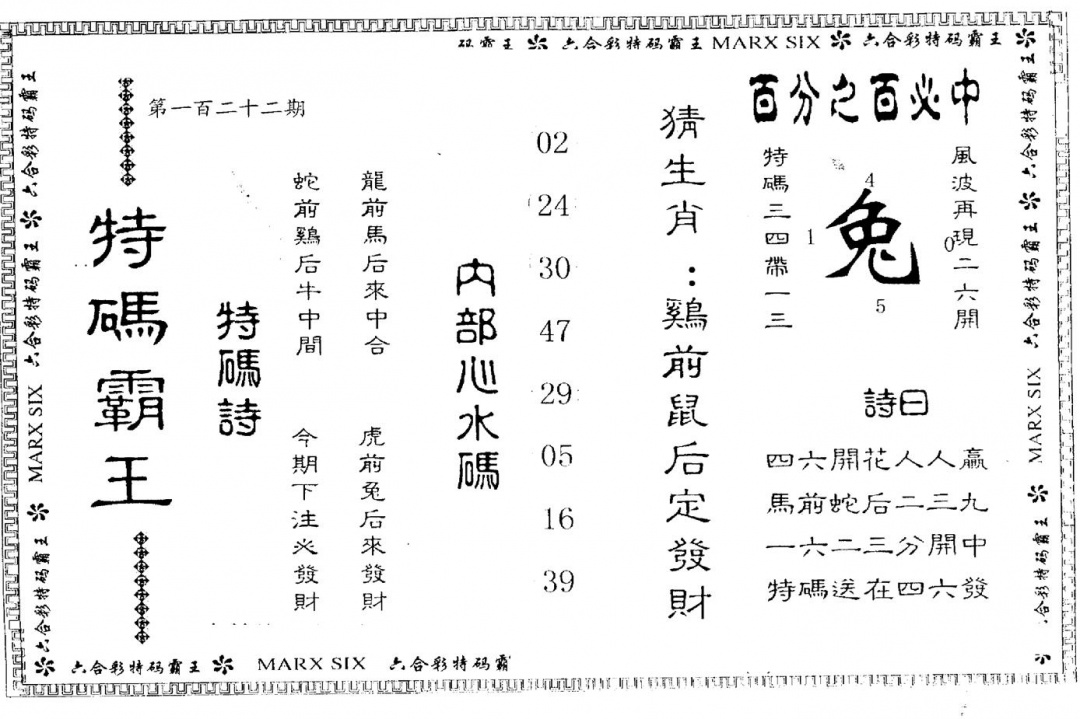 码霸王 六合彩特码霸王 MARX SIX 六合彩特码霸王
百分之百必中
風波再現二六開
特碼三四帶一三
4
1
兔
0
5
詩曰
四六開花人人贏
馬前蛇后二三九
一六二三分開中
特碼送在四六發
猜生肖：鷄前鼠后定發財
02
24
30
47
29
05
16
39
内部心水碼
龍前馬后來中合
蛇前鷄后牛中間
虎前兔后來發財
今期下注必發財
特碼詩
第一百二十二期
特碼霸王
六合彩特码霸王 六合彩特码霸王 MARX SIX 六合彩特码霸王
六合彩特码霸王 六合彩特码霸王 MARX SIX 合彩特码霸王
六合彩特码霸王 MARX SIX 六合彩特码霸